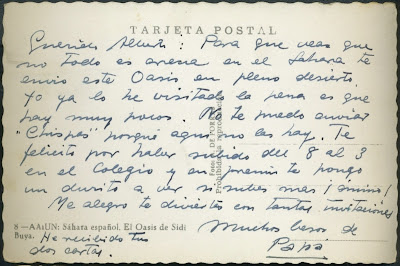 TARJETA POSTAL
Querido Alberto: Para que veas que
no todo es arena en el Sahara te
envio este Oasis en pleno desierto
Yo ya lo he visitado la pena es que
hay muy pocos. No te puedo enviar
"Chispas" porque aqui no las hay. Te
felicito por haber subido del 8 al 3
en el Colegio y en premio te pongo
un durito a ver si subes mas ¡animo!
Me alegro te diviertas con tantas invitaciones
Muchos besos de
Papá
8 - AAIUN: Sáhara español. El Oasis de Sidi
Buya.
He recibido tus
dos cartas.
Prohibida reproducción